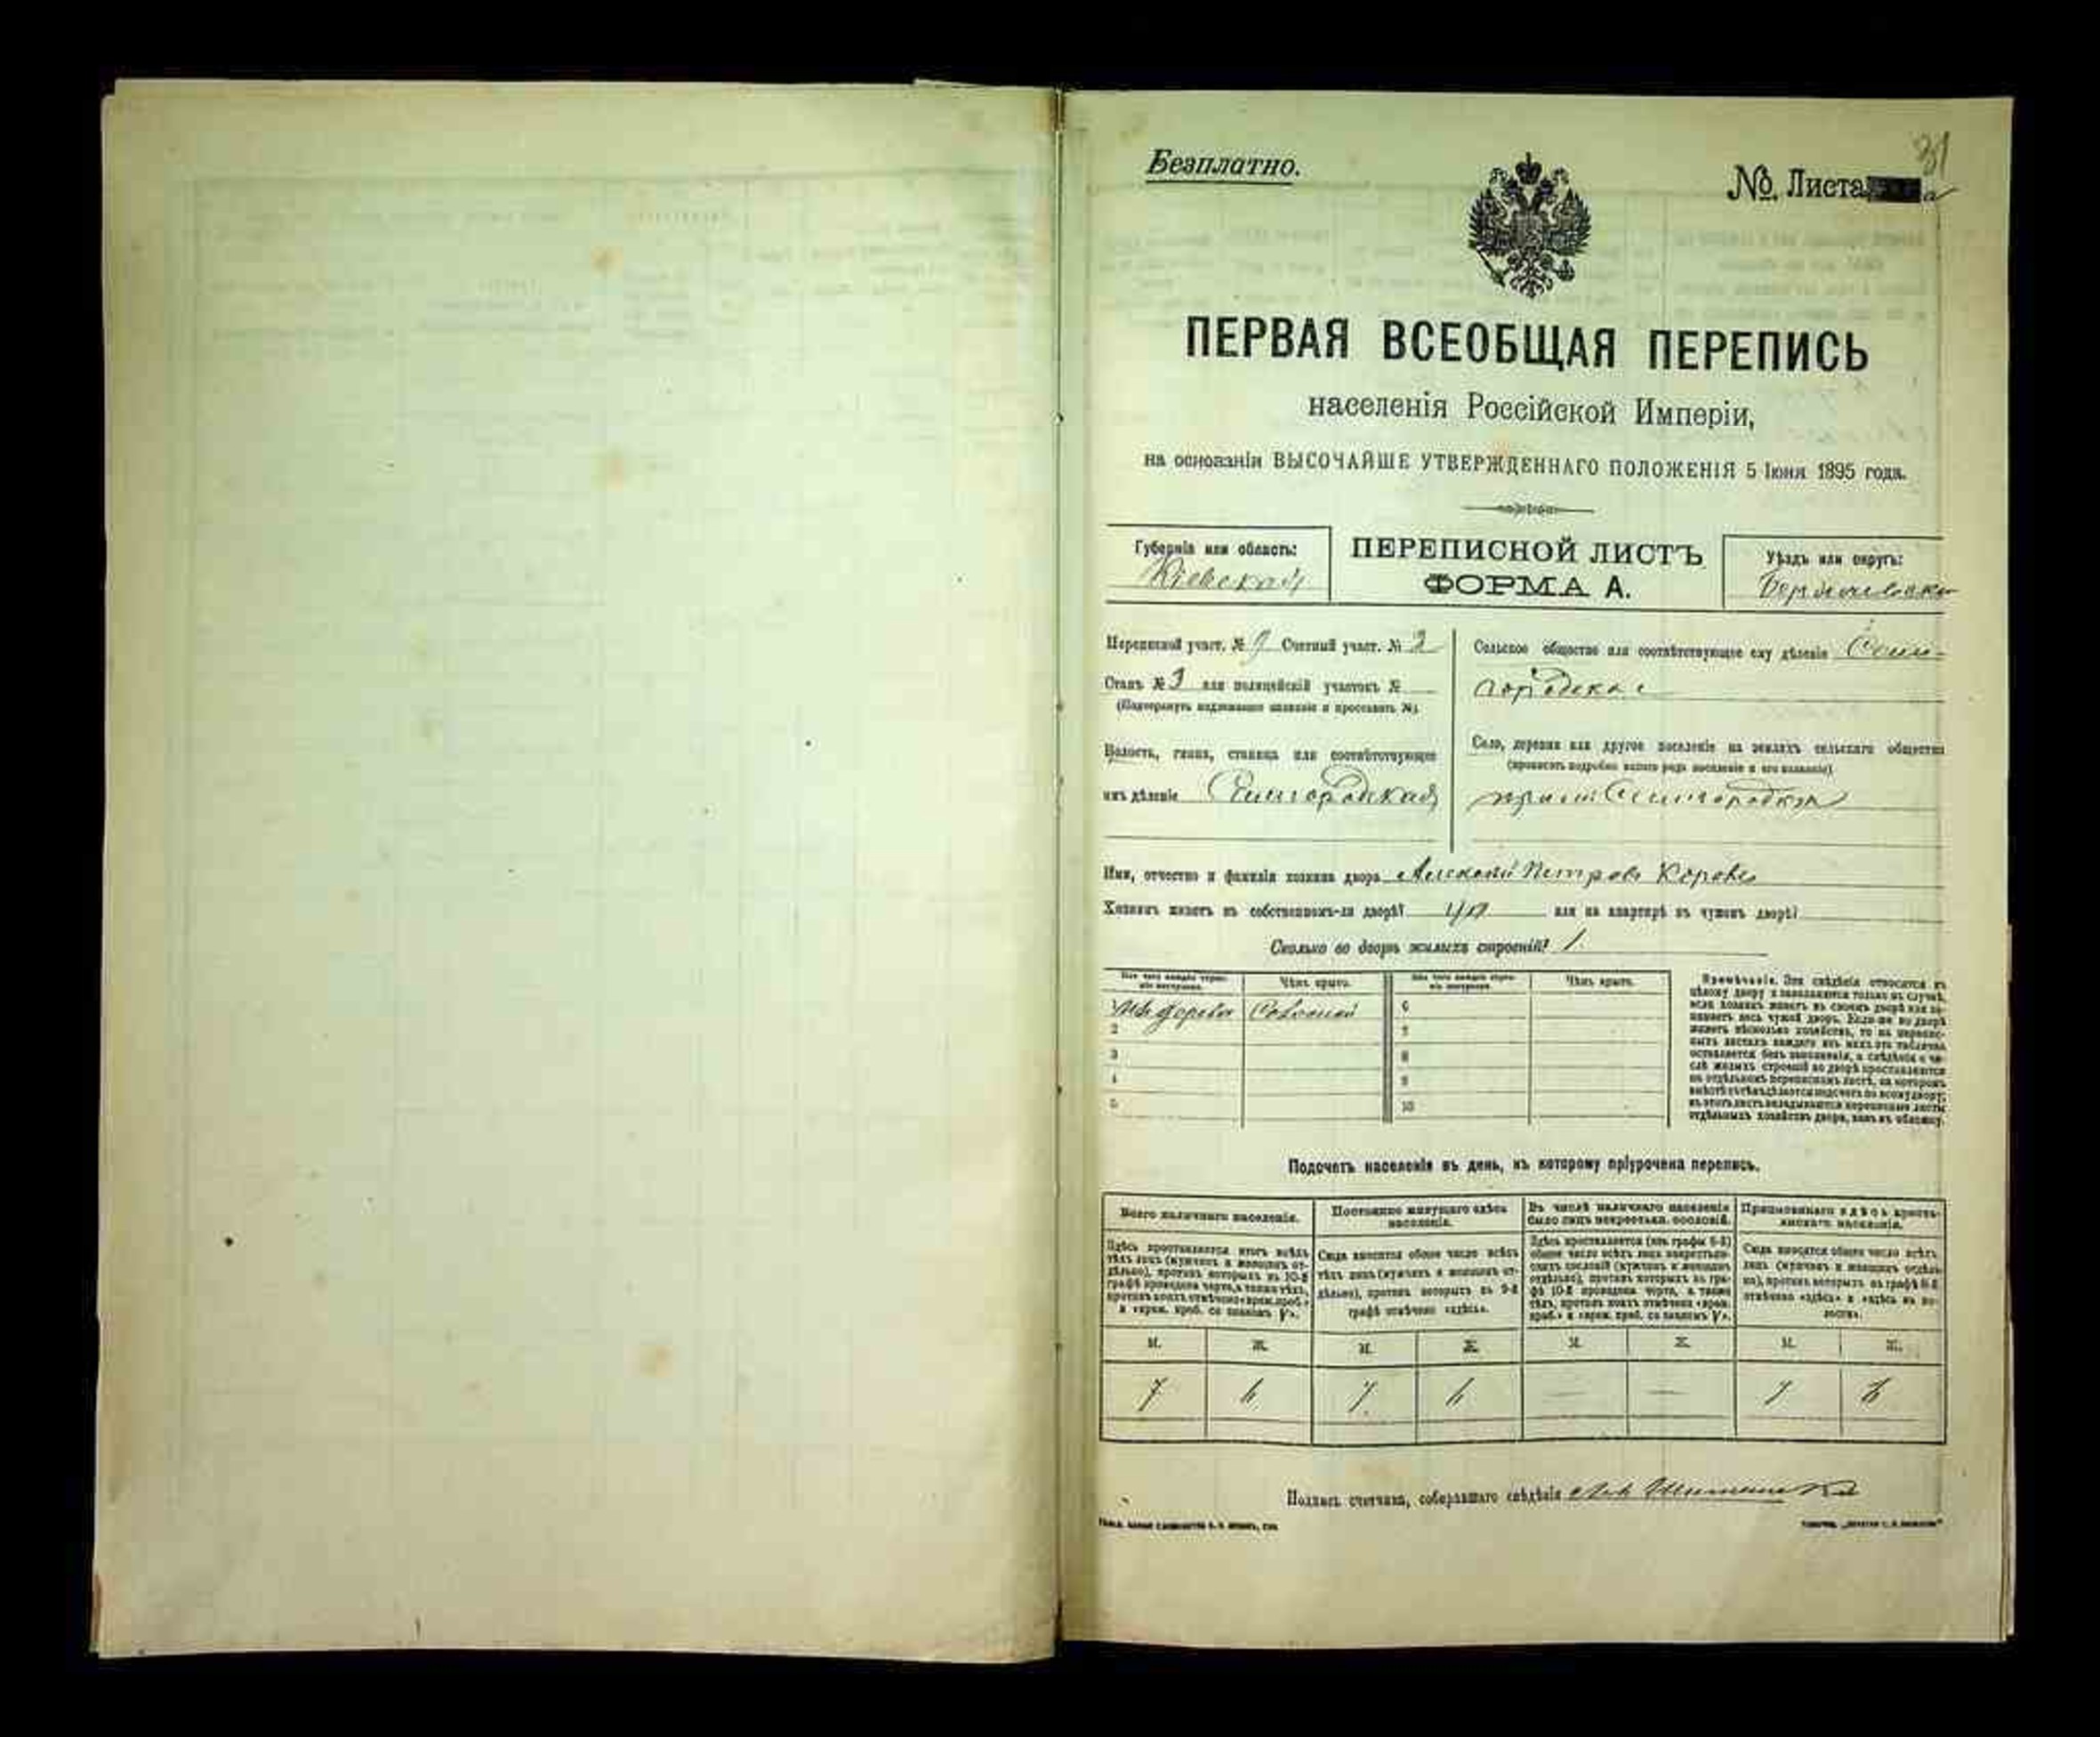 Безплатно.
31
№ Листа а
ПЕРВАЯ ВСЕОБЩАЯ ПЕРЕПИСЬ
населенія Россійской Имперіи,
на основаніи ВЫСОЧАЙШЕ УТВЕРЖДЕННАГО ПОЛОЖЕНІЯ 5 Іюня 1895 года.
Губернія или область:
Кіевская
ПЕРЕПИСНОЙ ЛИСТЪ
ФОРМА А.
Уѣздъ или округъ:
Переписной участ. № 9 Счетный участ. № 2
Станъ № 3 или полицейскій участокъ №
(Подчеркнуть надлежащее названіе и проставить №)
Волость, гмина, станица или соотвѣтствующее
имъ дѣленіе
Сельское общество или соотвѣтствующее ему дѣленіе
Село, деревня или другое поселеніе на земляхъ сельскаго общества
(прописать подробно какого рода поселеніе и его названіе)
Имя, отчество и фамилія хозяина двора Алексѣй Петровъ
Хозяинъ живетъ въ собственномъ-ли дворѣ? или на квартирѣ въ чужомъ дворѣ?
Сколько во дворѣ жилыхъ строеній? 1.
Изъ чего каждое строеніе построено.
Чѣмъ крыто.
Изъ чего каждое строеніе построено.
Чѣмъ крыто.
Соломой 6
2 7
3 8
4 9
5 10
Примѣчаніе. Эти свѣдѣнія относятся къ
цѣлому двору и заполняются только въ случаѣ,
если хозяинъ живетъ въ своемъ дворѣ или занимаетъ весь чужой дворъ. Если-же во дворѣ
живетъ нѣсколько хозяйствъ, то на переписныхъ листахъ каждаго изъ нихъ эта табличка
оставляется безъ заполненія, а свѣдѣнія о числѣ жилыхъ строеній во дворѣ проставляются
на отдѣльномъ переписномъ листѣ, на которомъ
вмѣстѣ съ тѣмъ дѣлается подсчетъ по всему двору;
въ этотъ листъ вкладываются переписные листы
отдѣльныхъ хозяйствъ двора, какъ въ обложку.
Подсчетъ населенія въ день, къ которому пріурочена перепись.
Всего наличнаго населенія.
Постоянно живущаго здѣсь населенія.
Въ числѣ наличнаго населенія было лицъ некрестьянск. сословій.
Приписаннаго здѣсь крестьянскаго населенія.
Здѣсь проставляется итогъ всѣхъ
тѣхъ лицъ (мужчинъ и женщинъ отдѣльно), противъ которыхъ въ 10-й
графѣ проведена черта, а также тѣхъ,
противъ коихъ отмѣчено «врем. проб.»
и «врем. проб. со знакомъ V».
Сюда вносится общее число всѣхъ
тѣхъ лицъ (мужчинъ и женщинъ отдѣльно), противъ которыхъ въ 9-й
графѣ отмѣчено «здѣсь».
Здѣсь проставляется (изъ графы 6-й)
общее число всѣхъ лицъ некрестьянскихъ сословій (мужчинъ и женщинъ
отдѣльно), противъ которыхъ въ графѣ 10-й проведена черта, а также
тѣхъ, противъ коихъ отмѣчено «врем.
проб.» и «врем. проб. со знакомъ V».
Сюда вносится общее число всѣхъ
лицъ (мужчинъ и женщинъ отдѣльно), противъ которыхъ въ графѣ 8-й
отмѣчено «здѣсь» и «здѣсь въ волости».
М. Ж. М. Ж. М. Ж. М. Ж.
7 6 7 6 — — 7 6
Подпись счетчика, собиравшаго свѣдѣнія